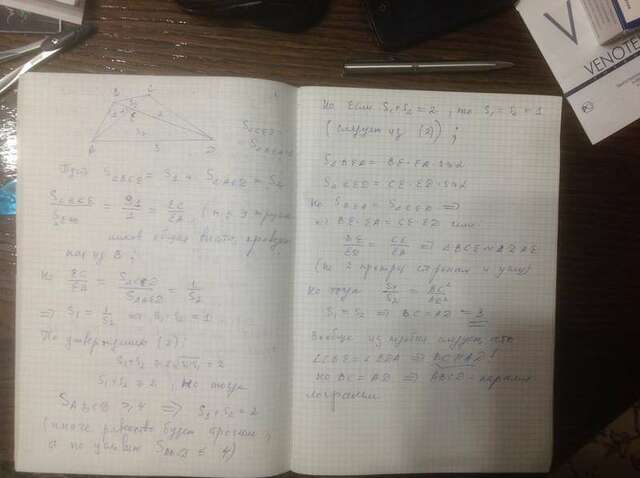 B C
S₁
E
S₂
A 3 D
S△CED =
Пусть S△BCE = S₁ и S△AED = S₂
S△BCE = S₁ = EC
1 EA
общая высота, проведен
ная из B
Но EC/EA = S△CED/S△AED = 1/S₂
⇒ S₁ = 1/S₂ S₁·S₂ = 1
По утверждению (2):
S₁+S₂ ≥ 2√S₁S₂ = 2
S₁+S₂ ≥ 2, но тогда
S ABCD ≥ 4 ⇒ S₁+S₂ = 2
(иначе равенство будет
а по условию S ABCD ≤ 4)
Но если S₁+S₂ = 2, то S₁ = S₂ = 1
(следует из (2));
S△BEA = BE·EA·sin α
S△CED = CE·ED·sin α
Но S△BEA = S△CED ⇒
BE·EA = CE·ED или
BE/ED = CE/EA ⇒ △BCE ∾ △DAE
(по 2 пропорц сторонам и углу)
Но тогда S₁/S₂ = BC²/AD²
S₁ = S₂ ⇒ BC = AD = 3
Вообще из подобия следует, что
∠CBE = ∠EDA ⇒ BC ∥ AD!
Но BC = AD ⇒ ABCD - паралле
лограмм
V
VENOTE